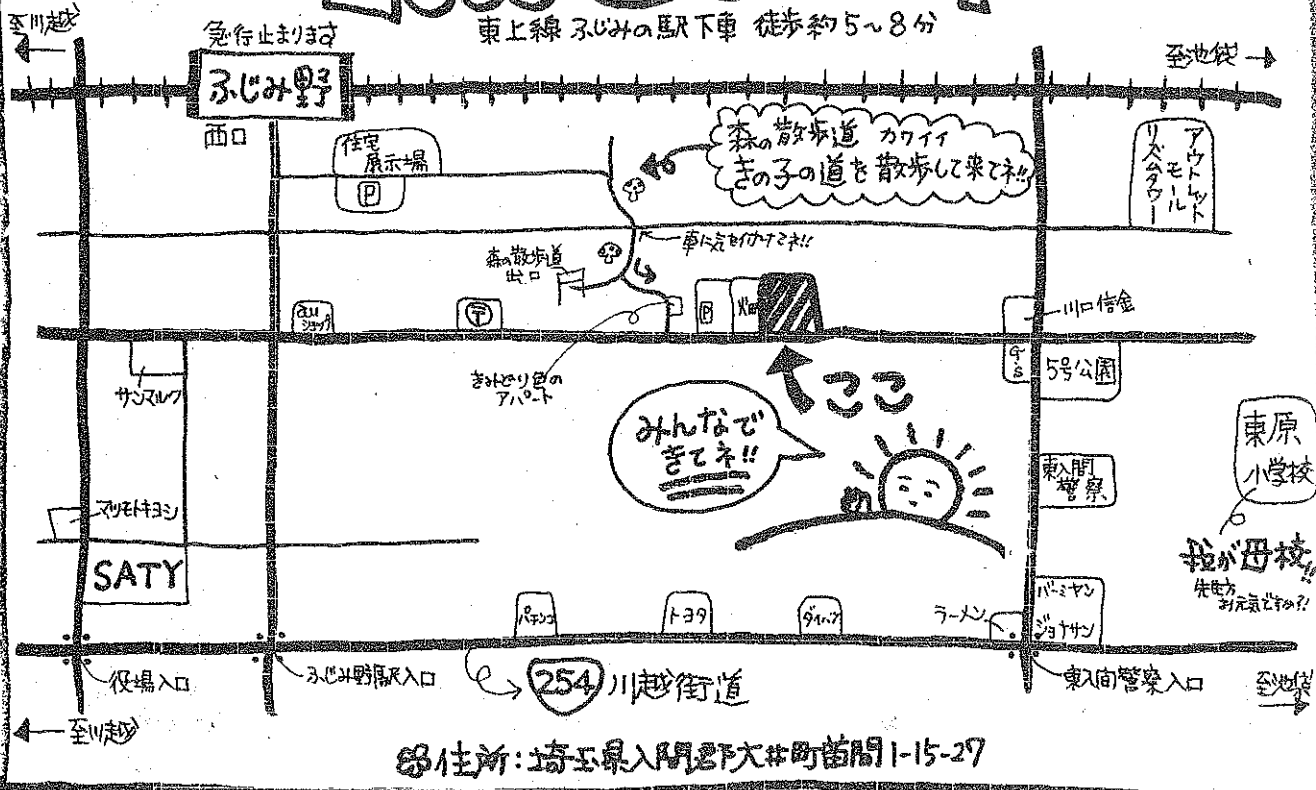 東上線 ふじみの駅下車 徒歩約5~8分
至川越
急行止まります
至池袋
ふじみ野
西口
住宅
展示場
P
森の散歩道 カワイイ
きの子の道を散歩して来てネ!!
アウトレット
モール
リズムタウン
車に気を付けてネ!!
森の散歩道
出口
au
ショップ
〒
P
畑
川口信金
G・S
5号公園
サンマルク
きみどり色の
アパート
ここ
みんなで
きてネ!!
東原
小学校
東入間
警察
マツモトキヨシ
SATY
我が母校!!
先生方
お元気ですか?!
パチンコ
トヨタ
ダイハツ
ラーメン
バーミヤン
ジョナサン
役場入口
ふじみ野駅入口
254 川越街道
東入間警察入口
至池袋
至川越
住所:埼玉県入間郡大井町苗間1-15-27